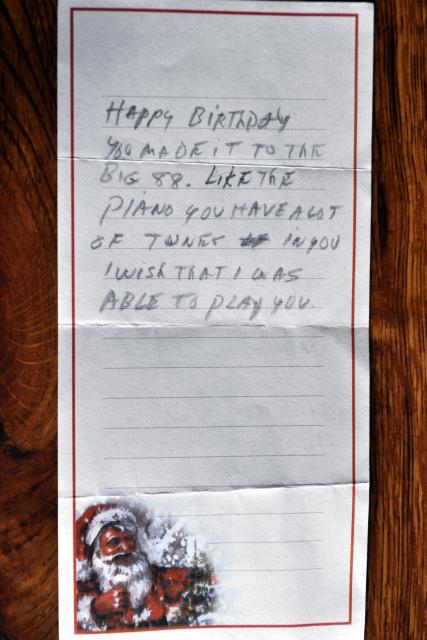 HAPPY BIRTHDAY
YOU MADE IT TO THE
BIG 88. LIKE THE
PIANO YOU HAVE A LOT
OF TUNES IN YOU
I WISH THAT I WAS
ABLE TO PLAY YOU.